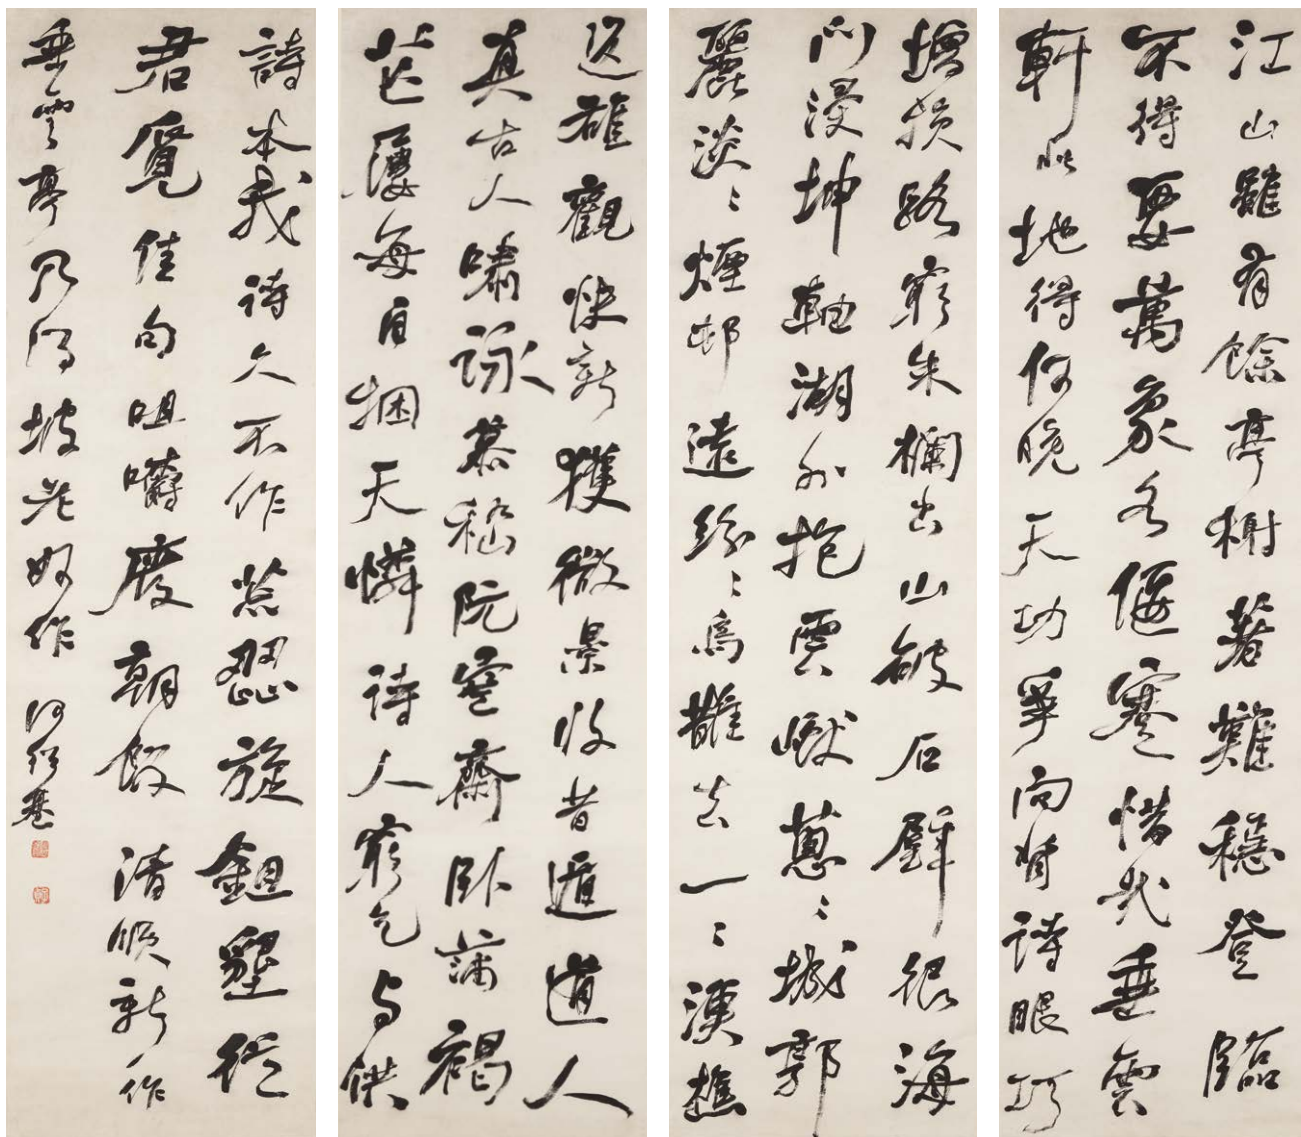 江山雖有餘亭榭著難穩登臨
不得要萬象各偃蹇惜哉垂雲
軒此地得何晚天功爭向背詩眼巧
增損路窮朱欄出山破石壁很海
門浸坤軸湖外抱雲巘蔥〻城郭
麗淡〻煙邨遠紛〻烏鵲去一〻漁樵
返雄觀快新獲微景收昔遁道人
真古人嘯詠慕嵇阮空齋臥蒲褐
芒屨每自捆天憐詩人窮乞與供
詩本我詩久不作荒澀旋鉏墾從
君覓佳句咀嚼廢朝飯 清順新作
垂雲亭乃坡老作 何紹基